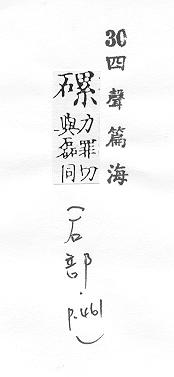 30四聲篇海
磥
力罪切
與磊同
(石部.p.461)